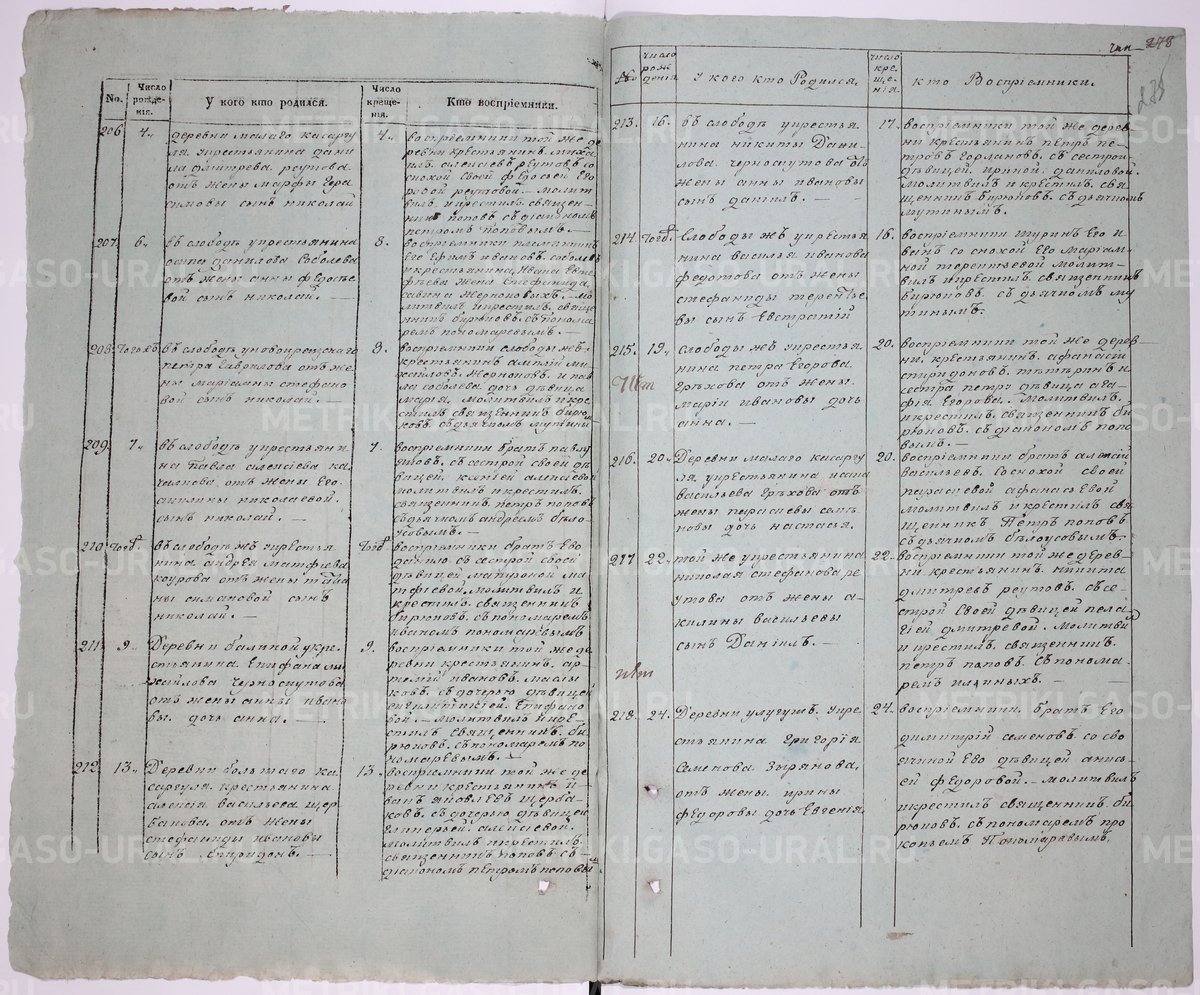 No.
Число рожде-нія.
У кого кто родился.
Число креще-нія.
Кто воспріемники.
206.
4.
деревни малаго касаргу
ля. укрестьянина дани
ла дмитрева реутова
отъ жены марфы гера
симовы сынъ николай
4.
воспріемники той же де
ревни крестьянинъ миха
илъ алексѣевъ реутовъ со
снохой своей федосьей его
ровой реутовой. — молит
вилъ икрестилъ священ—
никъ поповъ съдіакономъ
петромъ поповымъ. —
207.
6.
въ слободѣ укрестьянина
осипа данилова соболева
отъ жены анны федосѣе
вой сынъ николай. —
8.
воспріемники племянникъ
его ефимъ ивановъ соболевъ
икрестьянина ивана евсе
фьева жена стефанида
савина жерноковыхъ. — мо
литвилъ икрестилъ свяще
нникъ бирюковъ. съпонома
ремъ пономаревымъ. —
208.
Тогожъ
въ слободѣ уновокрещенаго
петра гаврилова отъ же
ны маріамны стефано
вой сынъ николай. —
9.
воспріемники слободы жъ
крестьянинъ
михайловъ жерноковъ. и пав
ла соболева дочь дѣвица
марія. молитвилъ икре
стилъ священникъ бирю
ковъ. съдьячкомъ мутины
209.
7.
въ слободѣ укрестьяни
на павла алексѣева ка
отъ жены его
акилины николаевой.
сынъ николай. —
7.
воспріемники братъ павлу
съ сестрой своей дѣ
вицей. ксеніей алексѣевой
молитвилъ икрестилъ.
священникъ петръ поповъ
съдьячкомъ андреемъ бѣло
усовымъ. —
210.
Тогоѣ
въ слободѣ жъ укрестья
нина андрея матфѣева
коурова отъ жены татья
ны симановой сынъ
николай. —
Тогоѣ
воспріемники братъ его
данило съ сестрой своей
дѣвицей матроной ма
тфѣевой. молитвилъ и
крестилъ. священникъ
бирюковъ. съ пономаремъ
иваномъ пономаревымъ
211.
9.
Деревни балиной укре
стьянина. епифана ми
хайлова черноскутова
отъ жены анны ивано
вы дочь анна. —
9.
воспріемники той же де
ревни крестьянинъ. ар
темій ивановъ. масли
ковъ. съ дочерью дѣвицей
епифано
вой. — молитвилъ икре—
стилъ священникъ. би
рюковъ. съпономаремъ по
номаревымъ. —
212.
13.
Деревни большаго ка
саргуля. крестьянина
алексія васильева щер
бакова. отъ жены
стефаниды ивановы
сынъ спиридонъ. —
13.
воспріемники той же де
ревни крестьянинъ и
ванъ яковлевъ щерба
ковъ. съ дочерью дѣвицей
алексѣевой.
молитвилъ икрестилъ
священникъ поповъ съ—
діакономъ петромъ поповы
278
278
№
число рож денія
У кого кто Родился.
число кре- ще- нія.
кто Воспріемники.
213.
16.
въ слободѣ укрестья.
нина никиты Дани
лова черноскутова отъ
жены анны ивановы
сынъ данилъ. —
17.
воспріемники той же дерев
ни крестьянинъ петръ пе—
тровъ горлановъ. съ сестрой
дѣвицей. ириной. даниловой.
молитвилъ и крестилъ. свя
щенникъ бирюковъ. съдьячкомъ
мутинымъ.
214.
Тогоѣ.
Слободы жъ укрестья
нина василья иванова
федотова отъ жены
стефаниды терентье
вы сынъ евстратій
16.
воспріемники шуринъ его и
ванъ со снохой его маріам—
ной терентьевой. молит—
вилъ икрестилъ. священникъ
бирюковъ. съ дьячкомъ му
тинымъ.
215.
19.
слободы жъ укрестья.
нина петра егорова.
грѣхова отъ жены.
маріи ивановы дочь
анна. —
20.
воспріемники той же дерев—
ни. крестьянинъ. афанасій
спиридоновъ. и
сестра петру дѣвица ага—
фія егорова. — молитвилъ.
икрестилъ. священникъ би
рюковъ. съ діакономъ попо
вымъ. —
216.
20.
Деревни малаго касаргу
ля. укрестьянина исака
васильева грѣхова отъ
жены параскевы семе
новы дочь настасья.
20.
воспріемники братъ алексѣй
васильевъ. со снохой своей
параскевой афанасьевой
молитвилъ и крестилъ свя
щенникъ Петръ поповъ
съ дьячкомъ бѣлоусовымъ.
217
22.
той же укрестьянина
николая стефанова ре
утова отъ жены а—
килины васильевы
сынъ Даніилъ. —
22.
воспріемники той же дерев—
ни крестьянинъ. никита
дмитревъ реутовъ. съ се—
строй своей дѣвицей пела
геей дмитревой. молитвилъ
и крестилъ. священникъ.
петръ поповъ. съ понома—
ремъ ильиныхъ. —
218.
24.
Деревни улугушъ. укре—
стьянина григорія
Семенова зырянова,
отъ жены. ирины
федоровы дочь Евгенія.
24.
воспріемники. братъ его
димитрій семеновъ. со сво
ячиной его дѣвицей анись—
ей федоровой. — молитвилъ
икрестилъ священникъ. би
рюковъ. съ пономаремъ про
копьемъ Пономаравымъ.
METRIKI.GASO-URAL.RU